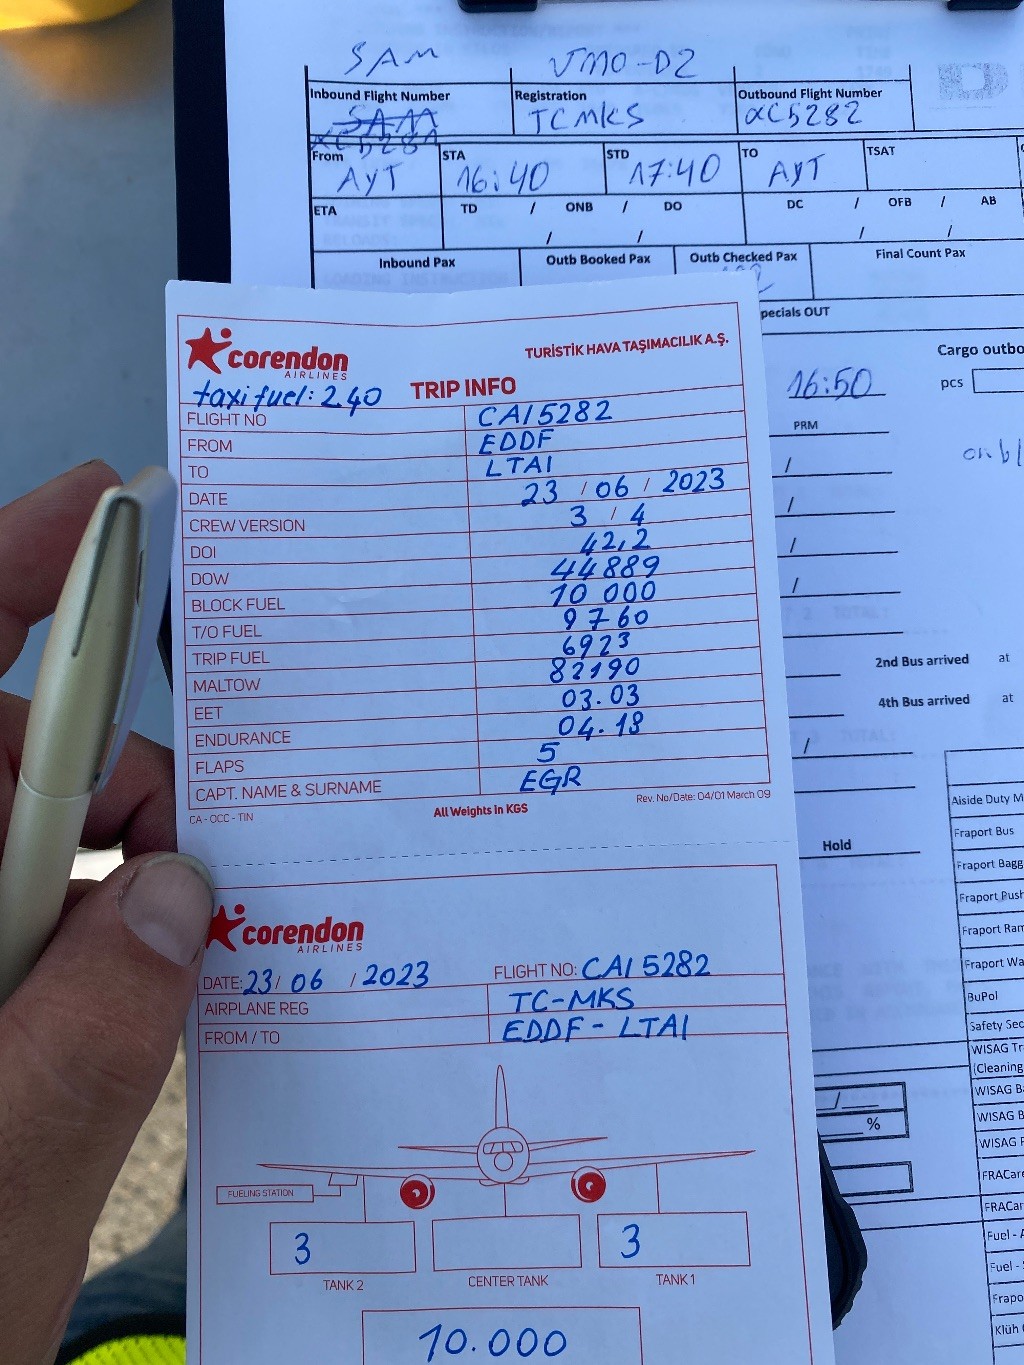 SAM VJMO-D2
Inbound Flight Number Registration Outbound Flight Number
SAM TCMKS XC5282
From STA STD TO TSAT
AYT 16:40 17:40 AYT
ETA TD / ONB / DO DC / OFB / AB
/ / / /
Inbound Pax Outb Booked Pax Outb Checked Pax Final Count Pax
corendon
AIRLINES
TURİSTİK HAVA TAŞIMACILIK A.Ş.
taxi fuel: 240 TRIP INFO
FLIGHT NO CAI 5282
FROM EDDF
TO LTAI
DATE 23 / 06 / 2023
CREW VERSION 3 / 4
DOI 42,2
DOW 44889
BLOCK FUEL 10 000
T/O FUEL 9760
TRIP FUEL 6923
MALTOW 82190
EET 03.03
ENDURANCE 04.18
FLAPS 5
CAPT. NAME & SURNAME EGR
CA - OCC - TIN All Weights in KGS Rev. No/Date: 04/01 March 09
corendon
AIRLINES
DATE: 23/ 06 / 2023 FLIGHT NO: CAI 5282
AIRPLANE REG TC-MKS
FROM / TO EDDF - LTAI
FUELING STATION
3 3
TANK 2 CENTER TANK TANK 1
10.000
pecials OUT
Cargo outbo
16:50 pcs
PRM
/
/
/
/
2nd Bus arrived at
4th Bus arrived at
/
Hold
Aiside Duty M
Fraport Bus
Fraport Bagg
Fraport Push
Fraport Ram
Fraport Wa
BuPol
Safety Sec
WISAG Tr
(Cleaning
WISAG B
WISAG B
WISAG F
FRACare
FRACar
Fuel - A
Fuel -
Frapo
Klüh
/
%